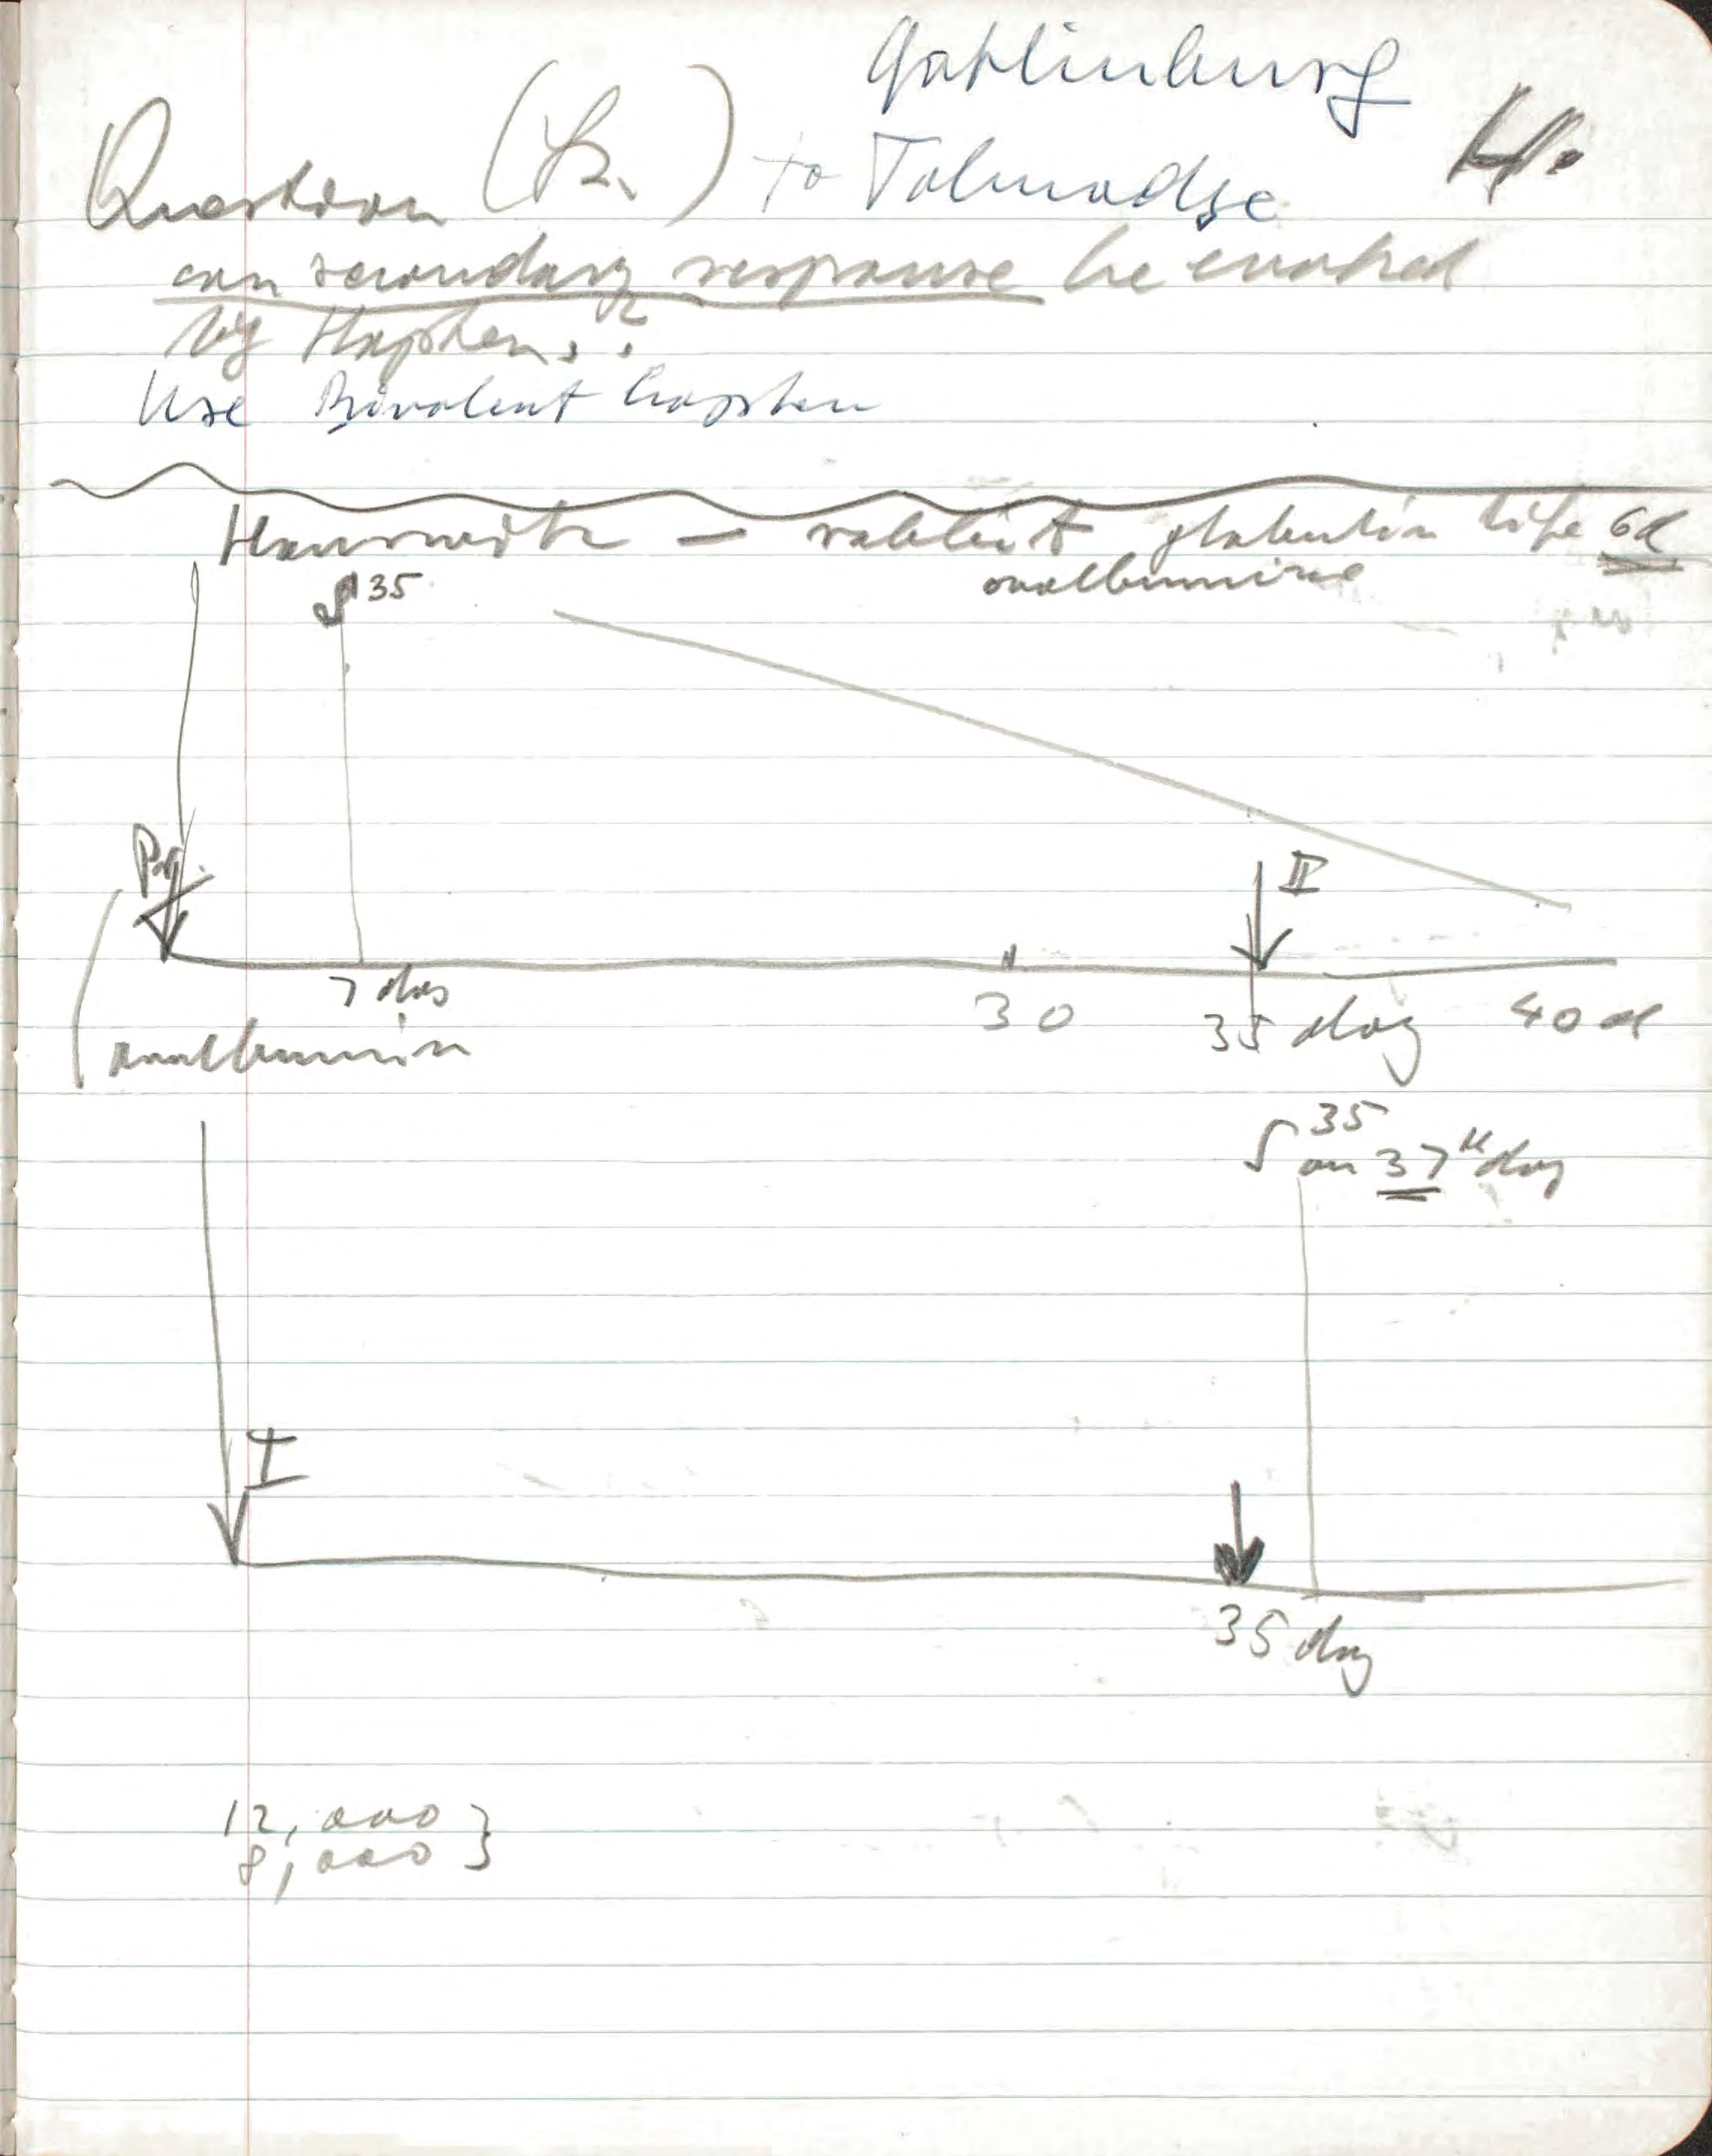 Gatlinburg
4.
Question (Sz.) to Talmadge
can secondary response be evoked
by Hapten?
Use Bivalent hapten
Haurowitz — rabbit globulin life 6d
ovalbumine
S 35
II
7 days
30
35 day
40 d
ovalbumin
S 35
on 37th day
I
35 day
12,000
8,000 }